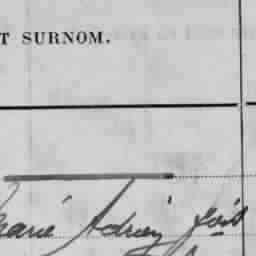 T SURNOM.
Marie Adrien